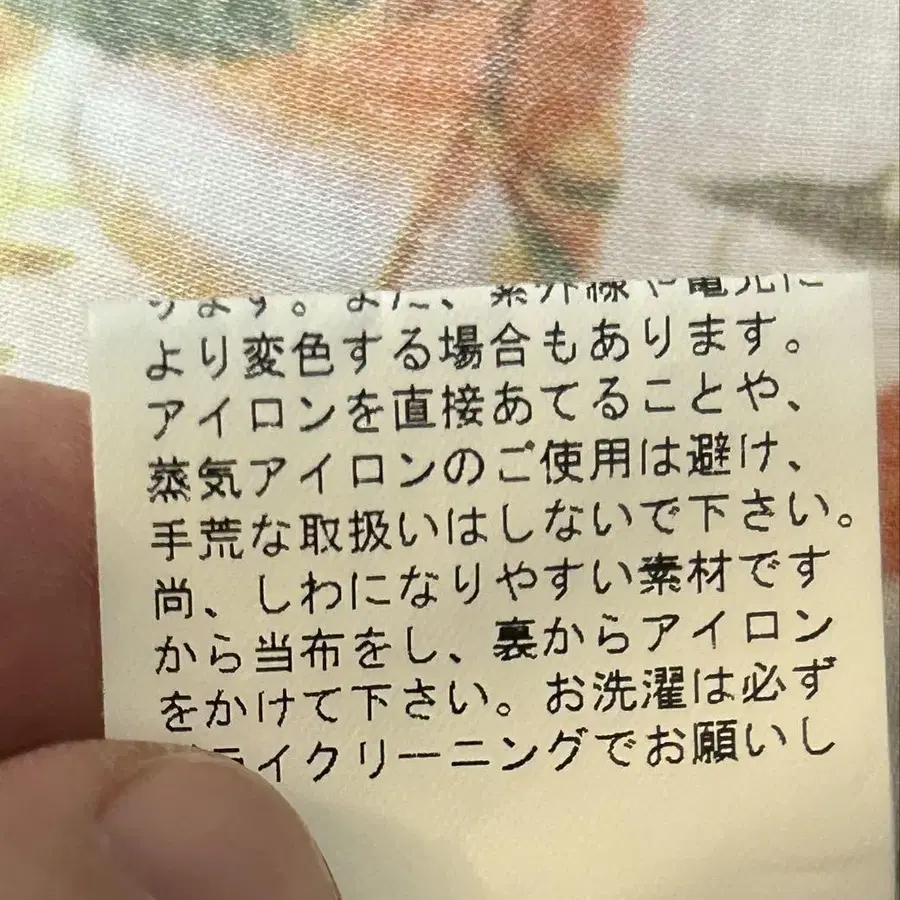 ります。また、紫外線や電光に
より変色する場合もあります。
アイロンを直接あてることや、
蒸気アイロンのご使用は避け、
手荒な取扱いはしないで下さい。
尚、しわになりやすい素材です
から当布をし、裏からアイロン
をかけて下さい。お洗濯は必ず
ライクリーニングでお願いし